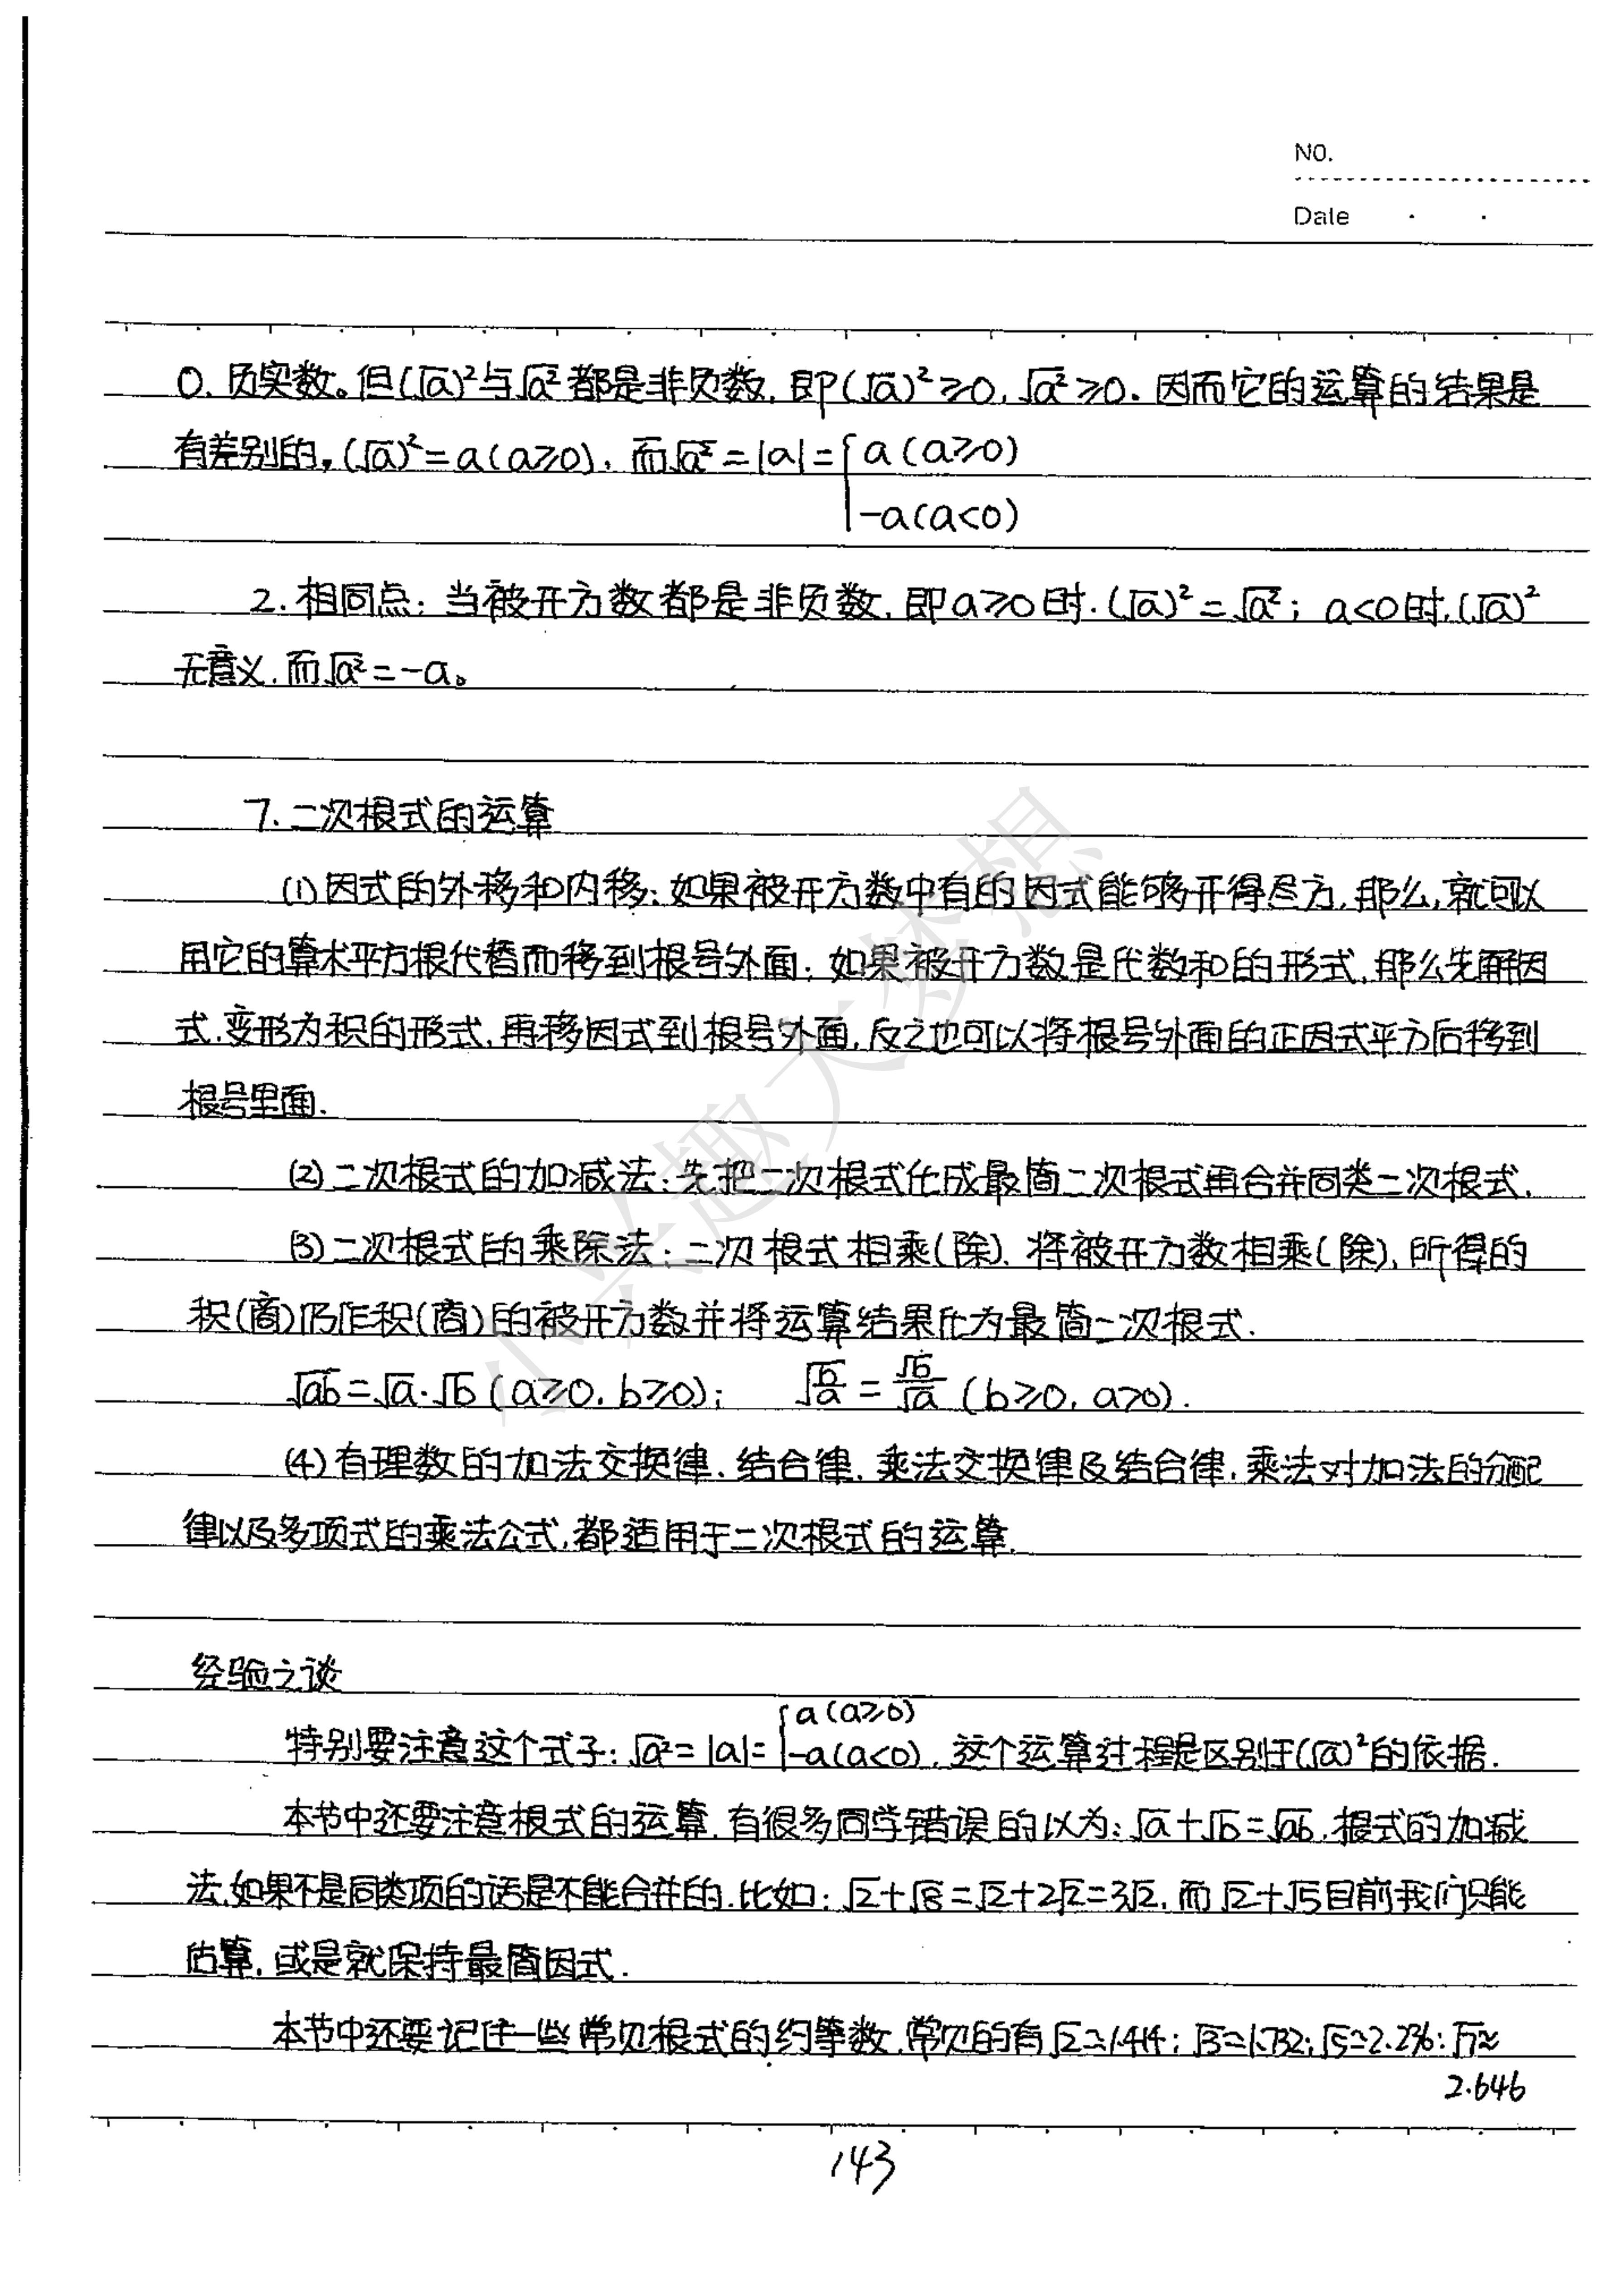 NO.
Date
0.负实数。但(√a)²与√a²都是非负数,即(√a)²≥0,√a²≥0.因而它的运算的结果是
有差别的,(√a)²=a(a≥0),而√a²=|a|={a(a≥0)
-a(a<0)
2.相同点:当被开方数都是非负数,即a≥0时.(√a)²=√a²;a<0时,(√a)²
无意义,而√a²=-a。
7.二次根式的运算
(1)因式的外移和内移:如果被开方数中有的因式能够开得尽方,那么,就可以
用它的算术平方根代替而移到根号外面;如果被开方数是代数和的形式,那么先解因
式,变形为积的形式,再移因式到根号外面,反之也可以将根号外面的正因式平方后移到
根号里面.
(2)二次根式的加减法:先把二次根式化成最简二次根式再合并同类二次根式.
(3)二次根式的乘除法:二次根式相乘(除),将被开方数相乘(除),所得的
积(商)仍作积(商)的被开方数并将运算结果化为最简二次根式.
√ab=√a·√b(a≥0,b≥0); √(b/a)=√b/√a(b≥0,a>0).
(4)有理数的加法交换律、结合律,乘法交换律及结合律,乘法对加法的分配
律以及多项式的乘法公式,都适用于二次根式的运算.
经验之谈
特别要注意这个式子:√a²=|a|={a(a≥0) -a(a<0),这个运算过程是区别于(√a)²的依据.
本节中还要注意根式的运算,有很多同学错误的以为:√a+√b=√ab,根式的加减
法,如果不是同类项的话是不能合并的.比如:√2+√8=√2+2√2=3√2,而√2+√5目前我们只能
估算,或是就保持最简因式.
本节中还要记住一些常见根式的约等数,常见的有√2≈1.414;√3≈1.732;√5≈2.236;√7≈
2.646
143
小兴趣大梦想